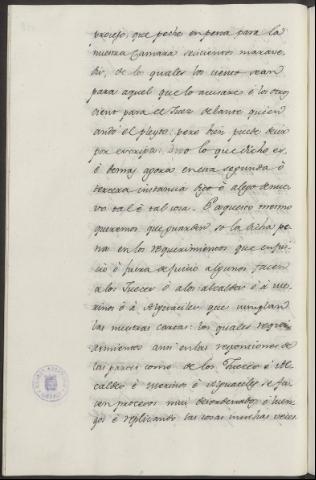 proceso, que peche en pena para la
nuestra Camara seiscientos marave-
dis, de lo quales los ciento sean
para aquel que lo acusare é los otros
ciento para el Juez delante quien
andó el pleyto; pero bien puede decir
por escripto: digo lo que dicho es,
é demas agora en esta segunda ó
tercera instancia digo é alego de nue-
vo tal é tal cosa. E aquesto mesmo
queremos que guarden so la dicha pe-
na en los requerimientos que en jui-
cio ó fuera de juicio algunos facen
a los Jueces ó a los alcaldes ó á me-
rinos ó á Alguaciles que cumplan
las nuestras cartas: los quales reque-
rimientos ansi en las responsiones de
las partes como de los Jueces é Al-
caldes é merinos é Alguaciles se fa-
cen procesos mui desordenados é luen-
gos é replicando las cosas muchas veces